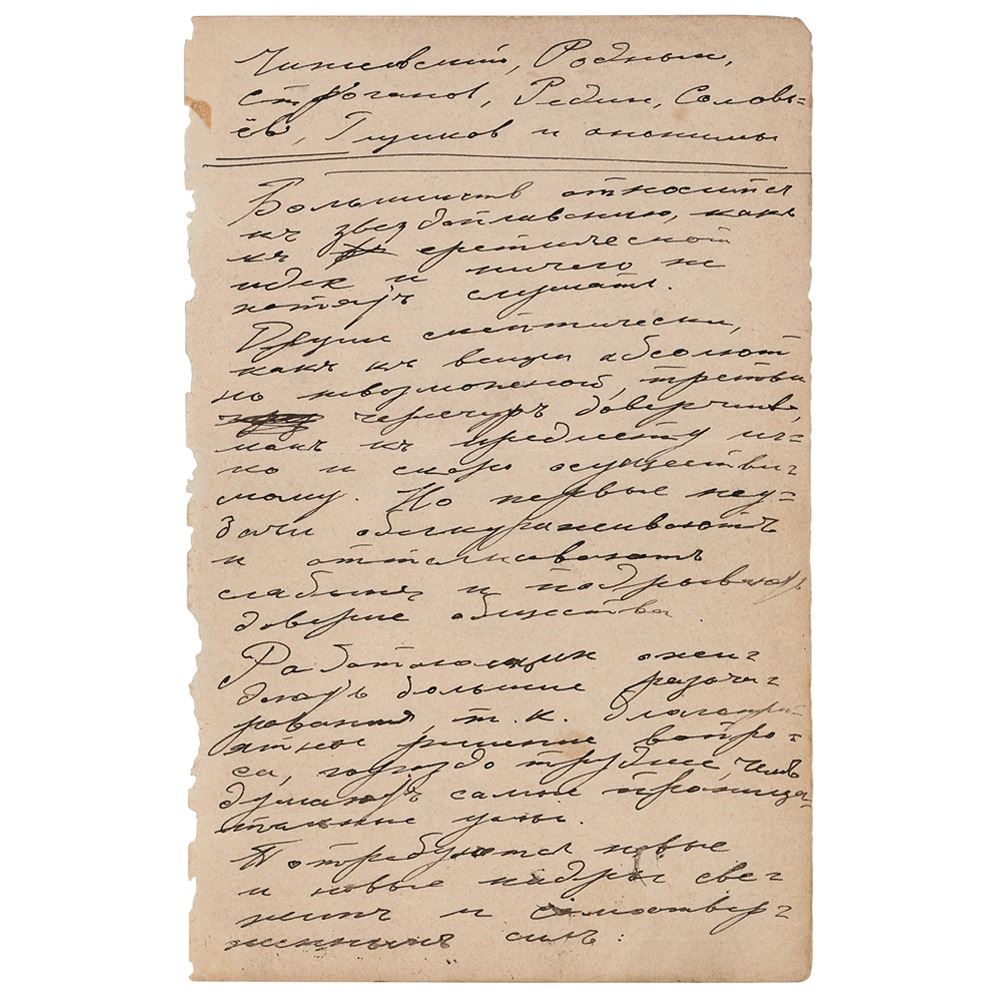 Чижевский, Родных,
Строганов, Редин, Соловь=
ёв, Глушков и анонимы
Большинство относится
къ звездоплаванию, какъ
къ еретической
идее и ничего не
хотятъ слушать.
Другие скептически,
какъ къ вещи абсолют
но невозможной, третьи
черечуръ доверчиво,
какъ къ предмету лег=
ко и скоро осуществи=
мому. Но первые неу=
дачи обескураживаютъ
и отталкиваютъ
слабыхъ и подрываютъ
доверие общества
Работающих ожи=
даютъ большие разоча=
рования, т.к. благопри=
ятное решение вопро=
са, гораздо труднее чемъ
думаютъ самые проница=
тельные умы.
Потребуются новые
и новые кадры све=
жихъ и самоотвер=
женныхъ силъ: